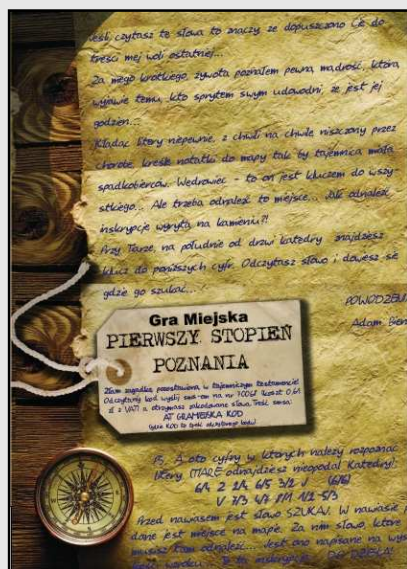 Jeśli czytasz te słowa to znaczy, że dopuszczono Cię do
treści mej woli ostatniej...
Za mego krótkiego żywota poznałem pewną mądrość, którą
wyjawię temu, kto sprytem swym udowodni, że jest jej
godzien...
Kładąc litery niepewnie, z chwili na chwilę niszczony przez
chorobę, kreślę notatki do mapy tak by tajemnica miała
spadkobierców. Wędrowiec - to on jest kluczem do wszy-
stkiego... Ale trzeba odnaleźć to miejsce... Jak odnaleźć
inskrypcję wyrytą na kamieniu?!
Przy Farze, na południe od drzwi katedry znajdziesz
klucz do poniższych cyfr. Odczytasz słowo i dowiesz się
gdzie go szukać...
POWODZENIA
Adam
Gra Miejska
PIERWSZY STOPIEŃ
POZNANIA
Złam zagadkę pozostawioną w tajemniczym testamencie!
Odczytany kod wyślij sms-em na nr 7004 (koszt 0,61
zł z VAT) a otrzymasz zakodowane słowa. Treść smsa:
AT GRAMIEJSKA KOD
PS. A oto cyfry w których należy rozpoznać
litery (MAPĘ odnajdziesz nieopodal Katedry):
6/4 2 1/4 6/5 3/2 J (6/6)
V 7/3 4/7 8/1 1/2 5/3
Przed nawiasem jest słowo SZUKAJ. W nawiasie
dane jest miejsce na mapie. Za nim słowo, które
musisz tam odnaleźć... Jest ono napisane na
wzroku... To ta inskrypcja... DO DZIEŁA!